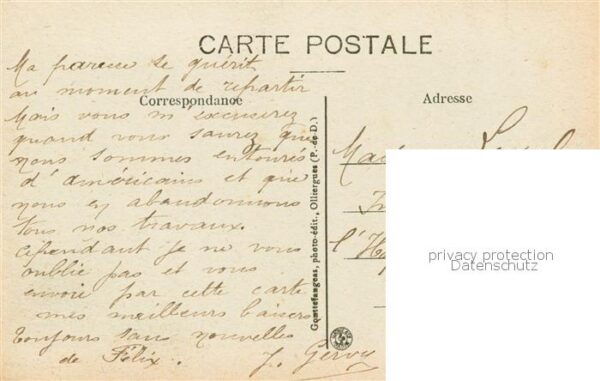 CARTE POSTALE
Correspondance
Adresse
Ma paresse se guérit
au moment de repartir
Mais vous m'excuserez
quand vous saurez que
nous sommes entourés
d'américains et que
nous en abandonnons
tous nos travaux.
Cependant je ne vous
oublie pas et vous
envoie par cette carte
mes meilleurs baisers
Toujours sans nouvelles
de Félix.
Gouttefangeas, photo-édit., Olliergues (P.-de-D.)
privacy protection
Datenschutz